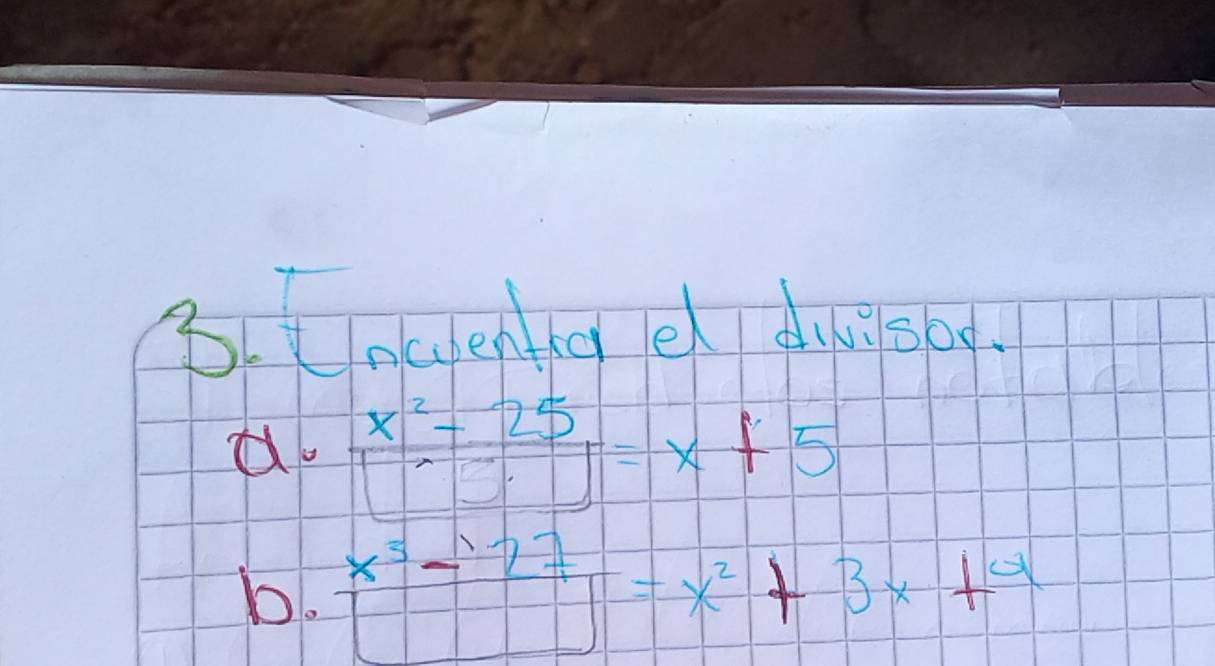 3. Encuentra el divisor.
a. x² - 25 / - 5 = x + 5
b. x³ - 27 / = x² + 3x + 9